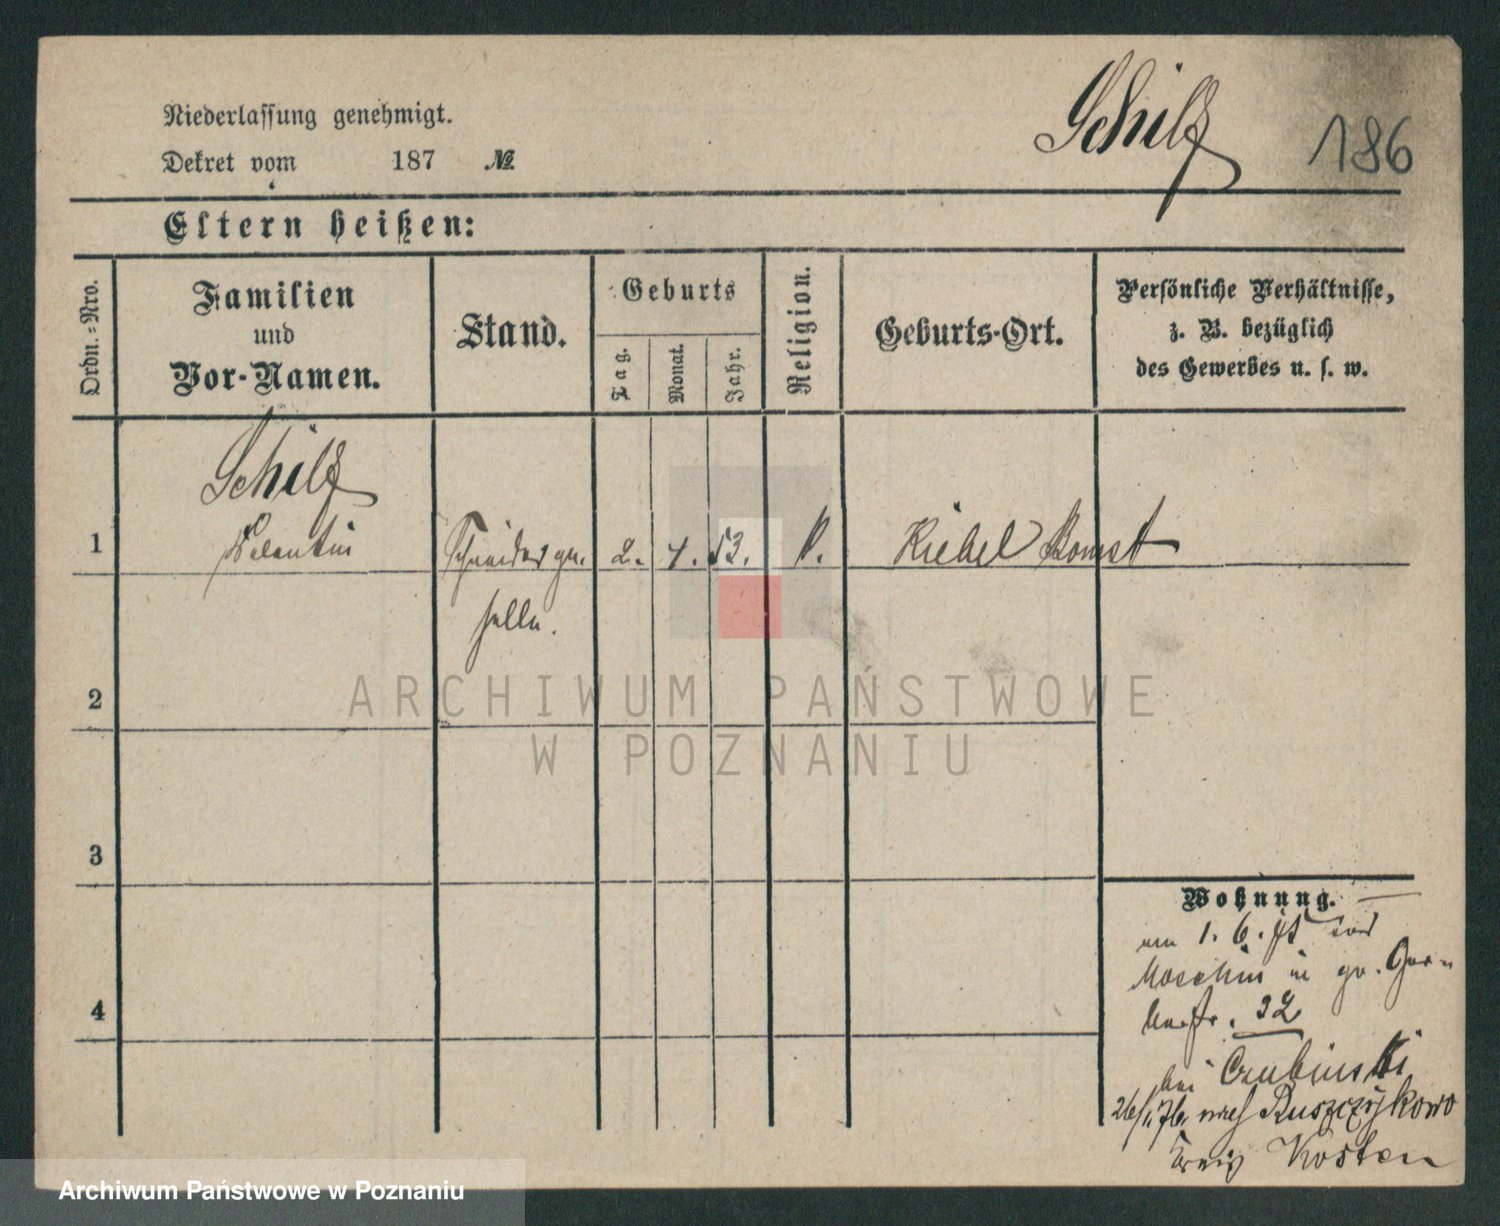 Niederlassung genehmigt.
Dekret vom 187 №
Schilf
186
Eltern heißen:
Ordn.-Nro.
Familien
und
Vor-Namen.
Stand.
Geburts
Tag.
Monat.
Jahr.
Religion.
Geburts-Ort.
Persönliche Verhältnisse,
z. B. bezüglich
des Gewerbes u. s. w.
Schilf
1 Valentin Schneiderge- 2. 1. 53. k. Kiebel Bomst
selle.
2
ARCHIWUM PAŃSTWOWE
W POZNANIU
3
4
Wohnung.
am 1. 6. 75 von
Moschin in gr. Ger-
berstr. 32
bei Czubinski
26/1.76. nach Puszczykowo
Kreis Kosten
Archiwum Państwowe w Poznaniu